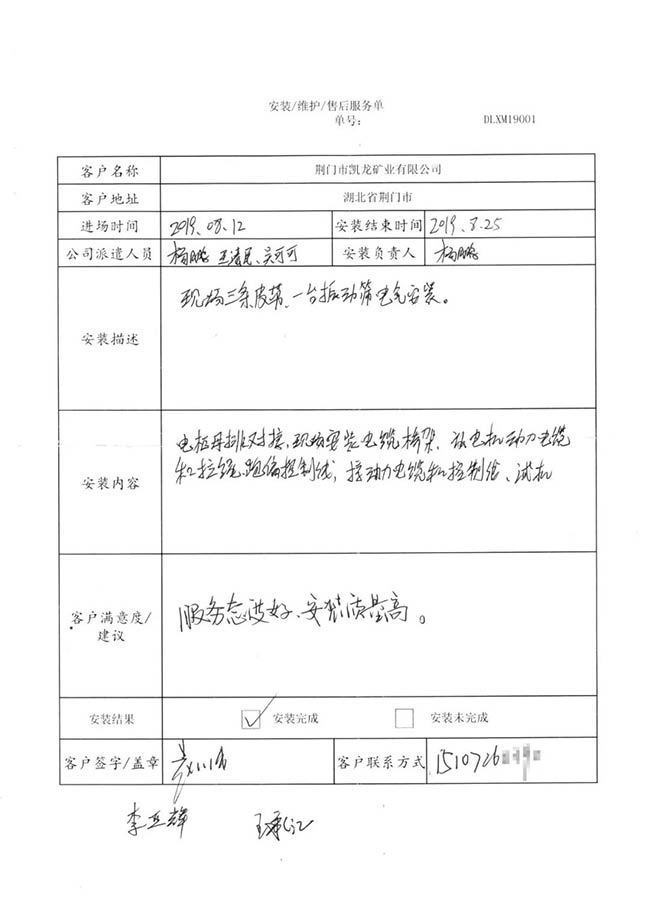 安装/维护/售后服务单
单号： DLXM19001
客户名称 荆门市凯龙矿业有限公司
客户地址 湖北省荆门市
进场时间 2019.08.12 安装结束时间 2019.8.25
公司派遣人员 杨鹏 王清民、吴可可 安装负责人 杨鹏
安装描述 现场三条皮带、一台振动筛电气安装。
电柜母排对接、现场安装电缆桥架、放电机动力电缆
安装内容 和拉绳跑偏控制线，接动力电缆和控制线、试机
客户满意度/
建议
服务态度好、安装质量高。
安装结果 安装完成 安装未完成
客户签字/盖章 客户联系方式 1510726
李亚辉